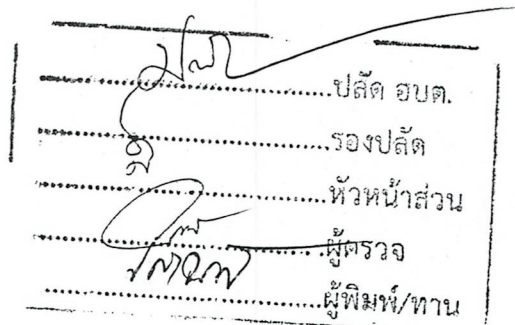 ....................ปลัด อบต.
....................รองปลัด
....................หัวหน้าส่วน
....................ผู้ตรวจ
....................ผู้พิมพ์/ทาน